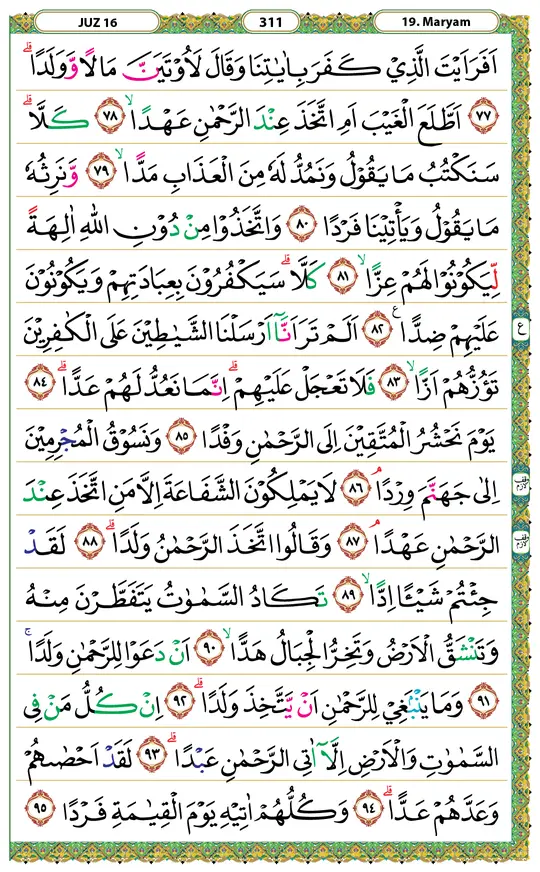 JUZ 16
311
19. Maryam
اَفَرَاَيْتَ الَّذِيْ كَفَرَ بِاٰيٰتِنَا وَقَالَ لَاُوْتَيَنَّ مَالًا وَّوَلَدًا ۗ
٧٧ اَطَّلَعَ الْغَيْبَ اَمِ اتَّخَذَ عِنْدَ الرَّحْمٰنِ عَهْدًا ۙ ٧٨ كَلَّا ۗ
سَنَكْتُبُ مَا يَقُوْلُ وَنَمُدُّ لَهٗ مِنَ الْعَذَابِ مَدًّا ۙ ٧٩ وَّنَرِثُهٗ
مَا يَقُوْلُ وَيَأْتِيْنَا فَرْدًا ٨٠ وَاتَّخَذُوْا مِنْ دُوْنِ اللّٰهِ اٰلِهَةً
لِّيَكُوْنُوْا لَهُمْ عِزًّا ۙ ٨١ كَلَّا ۗ سَيَكْفُرُوْنَ بِعِبَادَتِهِمْ وَيَكُوْنُوْنَ
عَلَيْهِمْ ضِدًّا ࣖ ٨٢ اَلَمْ تَرَ اَنَّآ اَرْسَلْنَا الشَّيٰطِيْنَ عَلَى الْكٰفِرِيْنَ
ع
تَؤُزُّهُمْ اَزًّا ۙ ٨٣ فَلَا تَعْجَلْ عَلَيْهِمْ ۗ اِنَّمَا نَعُدُّ لَهُمْ عَدًّا ۗ ٨٤
يَوْمَ نَحْشُرُ الْمُتَّقِيْنَ اِلَى الرَّحْمٰنِ وَفْدًا ٨٥ وَنَسُوْقُ الْمُجْرِمِيْنَ
اِلٰى جَهَنَّمَ وِرْدًا ۘ ٨٦ لَا يَمْلِكُوْنَ الشَّفَاعَةَ اِلَّا مَنِ اتَّخَذَ عِنْدَ
وقف لازم
الرَّحْمٰنِ عَهْدًا ۘ ٨٧ وَقَالُوا اتَّخَذَ الرَّحْمٰنُ وَلَدًا ۗ ٨٨ لَقَدْ
وقف لازم
جِئْتُمْ شَيْـًٔا اِدًّا ۙ ٨٩ تَكَادُ السَّمٰوٰتُ يَتَفَطَّرْنَ مِنْهُ
وَتَنْشَقُّ الْاَرْضُ وَتَخِرُّ الْجِبَالُ هَدًّا ۙ ٩٠ اَنْ دَعَوْا لِلرَّحْمٰنِ وَلَدًا ۚ
٩١ وَمَا يَنْۢبَغِيْ لِلرَّحْمٰنِ اَنْ يَّتَّخِذَ وَلَدًا ۗ ٩٢ اِنْ كُلُّ مَنْ فِى
السَّمٰوٰتِ وَالْاَرْضِ اِلَّآ اٰتِى الرَّحْمٰنِ عَبْدًا ۗ ٩٣ لَقَدْ اَحْصٰىهُمْ
وَعَدَّهُمْ عَدًّا ۗ ٩٤ وَكُلُّهُمْ اٰتِيْهِ يَوْمَ الْقِيٰمَةِ فَرْدًا ٩٥